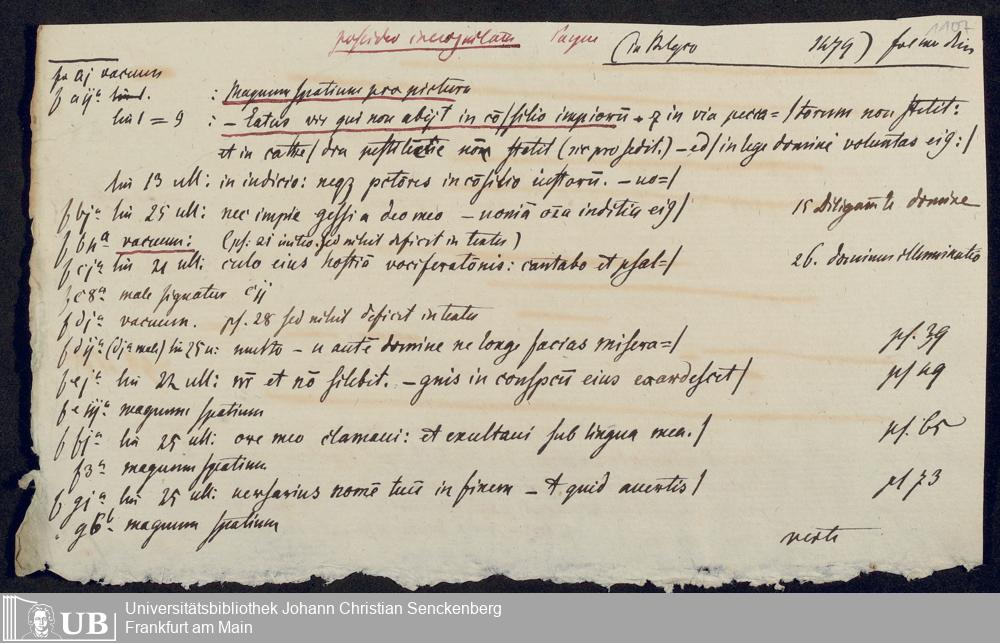 1107
possideo incognitam (in Belgio 1479)
p a j vacuum
f a ij a : Magnum spatium pro pictura
lin 1 = 9 : – Eatus vir qui non abijt in cō/silio impiorū + z in via pecca=/torum non stetit:
et in cathe/dra pestilēcie nōn stetit (nic pro sedit.) – ed/in lege domini voluntas eig:/
lin 13 ull: in iudicio: neqz pctores in cōsilio iustorū. – uo=/
f bj a lin 25 ull: nec impie gessi a deo meo – uoniā oīa indicia eig/ 15 Diligam te domine
f b4 a vacuum: (ps. 21 initio. sed nihil deficit in textu)
f cj a lin 21 ull: culo eius hostiā vociferatōnis: cantabo et psal=/ 26. dominus illuminatio
f c8 a male signatur cij
f dj a vacuum. ps. 28 sed nihil deficit in textu
f dij a (dj a male) lin 25 u: multo – u autē domine ne longe facias misera=/ ps. 39
f ej a lin 22 ull: nr̄ et nō silebit. – gnis in conspcū eius exardescet/ ps 49
f e iij a magnum spatium
f fj a lin 25 ull: ore meo clamaui: et exultaui sub lingua mea./ ps. 65
f3 a magnum spatium
f gj a lin 25 ull: uersarius nomē tuū in finem – t quid auertis/ ps 73
g6 b magnum spatium
verte
UB
Universitätsbibliothek Johann Christian Senckenberg
Frankfurt am Main